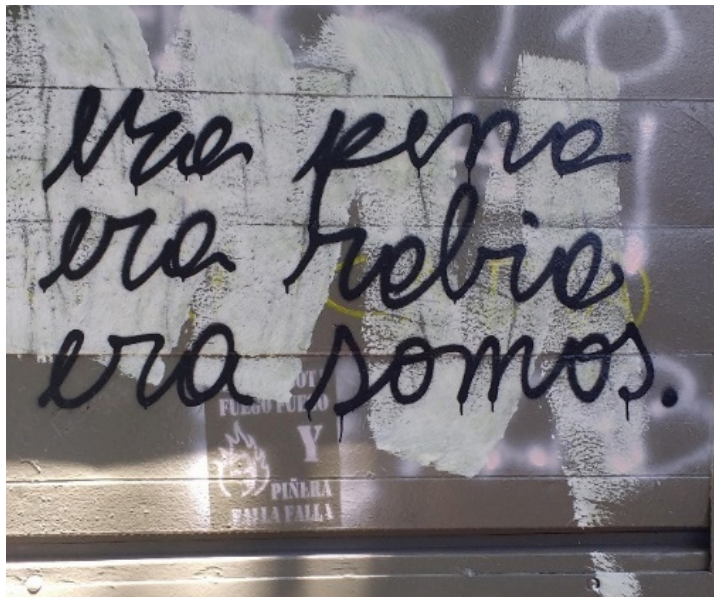 era pena
era rabia
era somos.
FUEGO FUEGO
Y
PIÑERA
FALLA FALLA